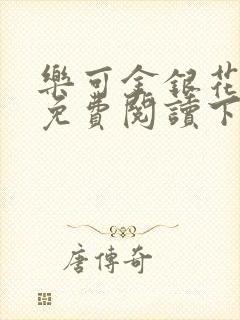 樂可金銀花
免費閱讀下
唐傳奇